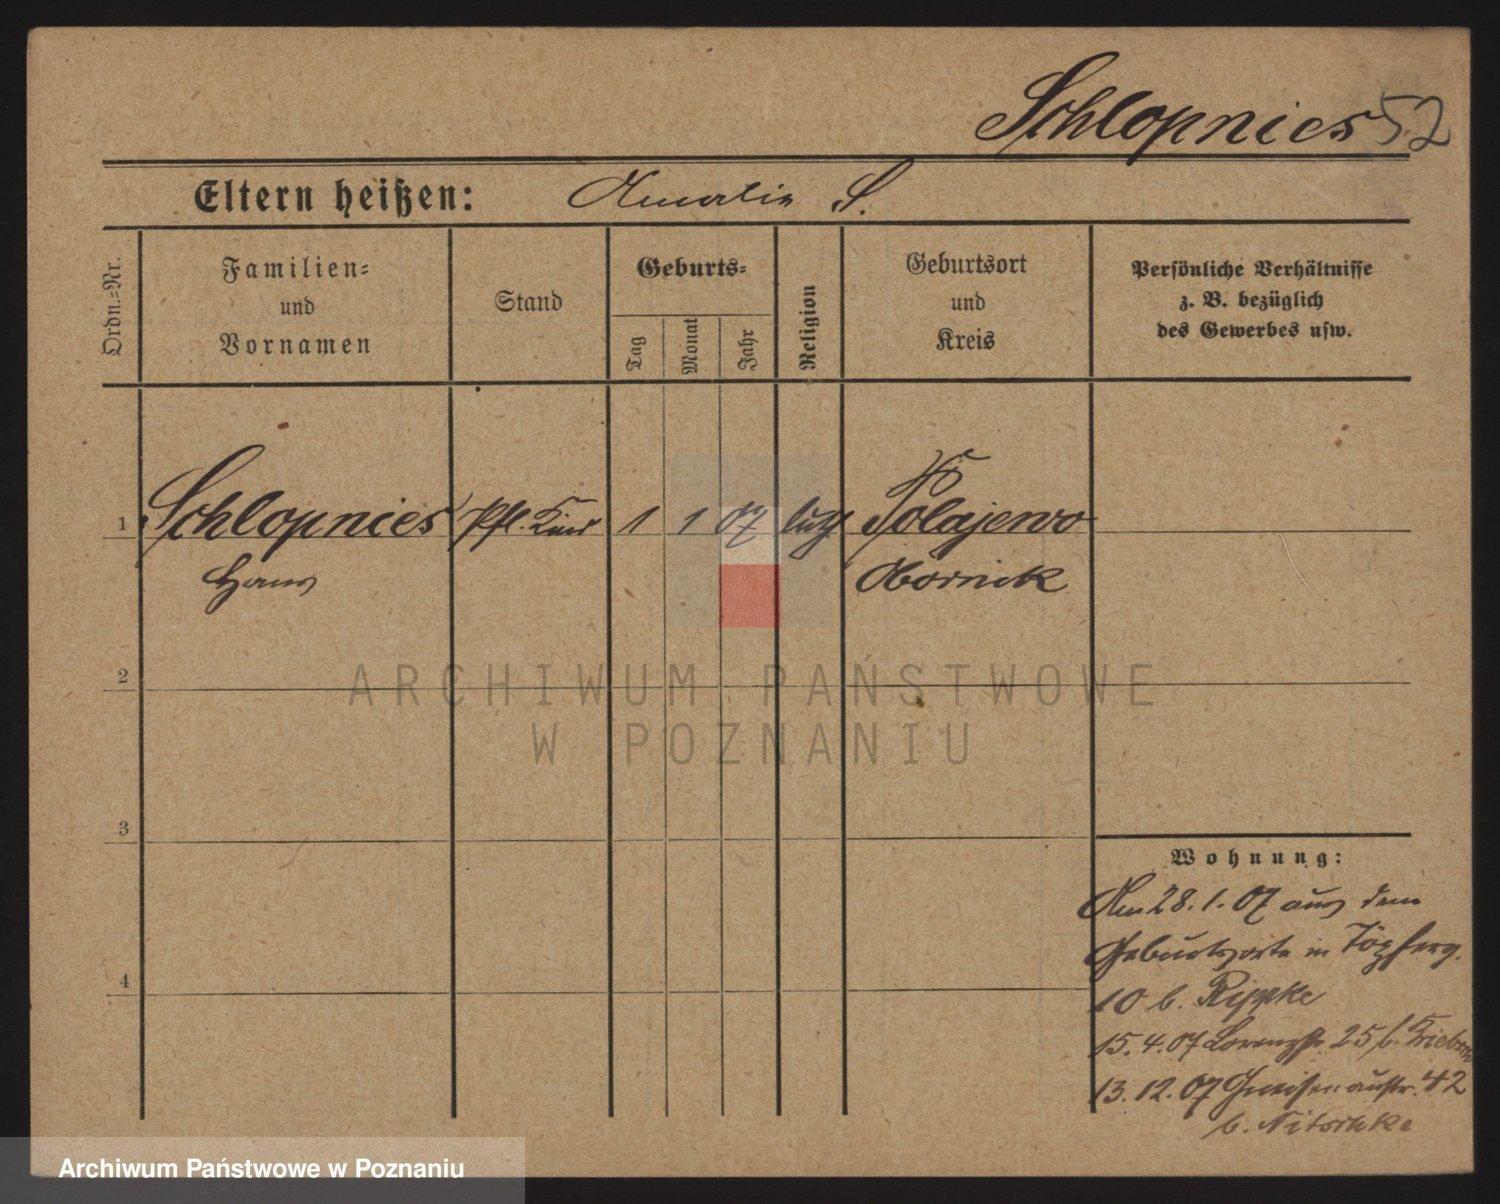 Schlopnies 52
Eltern heißen: Amalie S.
Ordn.=Nr.
Familien=
und
Vornamen
Stand
Geburts=
Tag
Monat
Jahr
Religion
Geburtsort
und
Kreis
Persönliche Verhältnisse
z. B. bezüglich
des Gewerbes usw.
1 Schlopnies Pfl. Kind 1 1 07 luth Polajewo
Hans Obornick
2
3
4
ARCHIWUM PAŃSTWOWE
W POZNANIU
Wohnung:
Am 28.1.07 aus dem
Geburtsorte in Töpferg.
10 b. Rippke
15.4.07 Lorenzstr. 25 b.
13.12.07 Gneisenaustr. 42
b. Nitschke
Archiwum Państwowe w Poznaniu